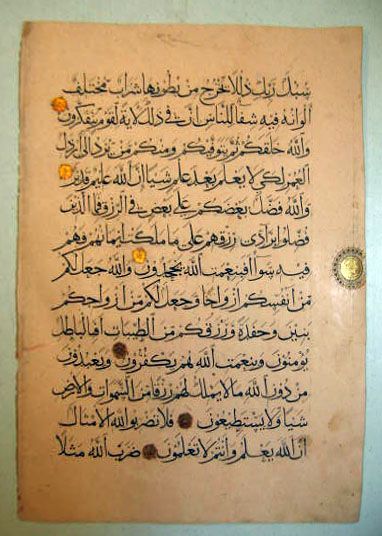 سُبُلَ رَبِّكِ ذُلُلًا يَخْرُجُ مِنْ بُطُونِهَا شَرَابٌ مُخْتَلِفٌ
أَلْوَانُهُ فِيهِ شِفَاءٌ لِلنَّاسِ إِنَّ فِي ذَلِكَ لَآيَةً لِقَوْمٍ يَتَفَكَّرُونَ
وَاللَّهُ خَلَقَكُمْ ثُمَّ يَتَوَفَّيكُمْ وَمِنْكُمْ مَنْ يُرَدُّ إِلَى أَرْذَلِ
الْعُمُرِ لِكَيْ لَا يَعْلَمَ بَعْدَ عِلْمٍ شَيْئًا إِنَّ اللَّهَ عَلِيمٌ قَدِيرٌ
وَاللَّهُ فَضَّلَ بَعْضَكُمْ عَلَى بَعْضٍ فِي الرِّزْقِ فَمَا الَّذِينَ
فُضِّلُوا بِرَادِّي رِزْقِهِمْ عَلَى مَا مَلَكَتْ أَيْمَانُهُمْ فَهُمْ
فِيهِ سَوَاءٌ أَفَبِنِعْمَتِ اللَّهِ يَجْحَدُونَ وَاللَّهُ جَعَلَ لَكُمْ
مِنْ أَنْفُسِكُمْ أَزْوَاجًا وَجَعَلَ لَكُمْ مِنْ أَزْوَاجِكُمْ
بَنِينَ وَحَفَدَةً وَرَزَقَكُمْ مِنَ الطَّيِّبَاتِ أَفَبِالْبَاطِلِ
يُؤْمِنُونَ وَبِنِعْمَتِ اللَّهِ هُمْ يَكْفُرُونَ وَيَعْبُدُونَ
مِنْ دُونِ اللَّهِ مَا لَا يَمْلِكُ لَهُمْ رِزْقًا مِنَ السَّمَوَاتِ وَالْأَرْضِ
شَيْئًا وَلَا يَسْتَطِيعُونَ فَلَا تَضْرِبُوا لِلَّهِ الْأَمْثَالَ
إِنَّ اللَّهَ يَعْلَمُ وَأَنْتُمْ لَا تَعْلَمُونَ ضَرَبَ اللَّهُ مَثَلًا